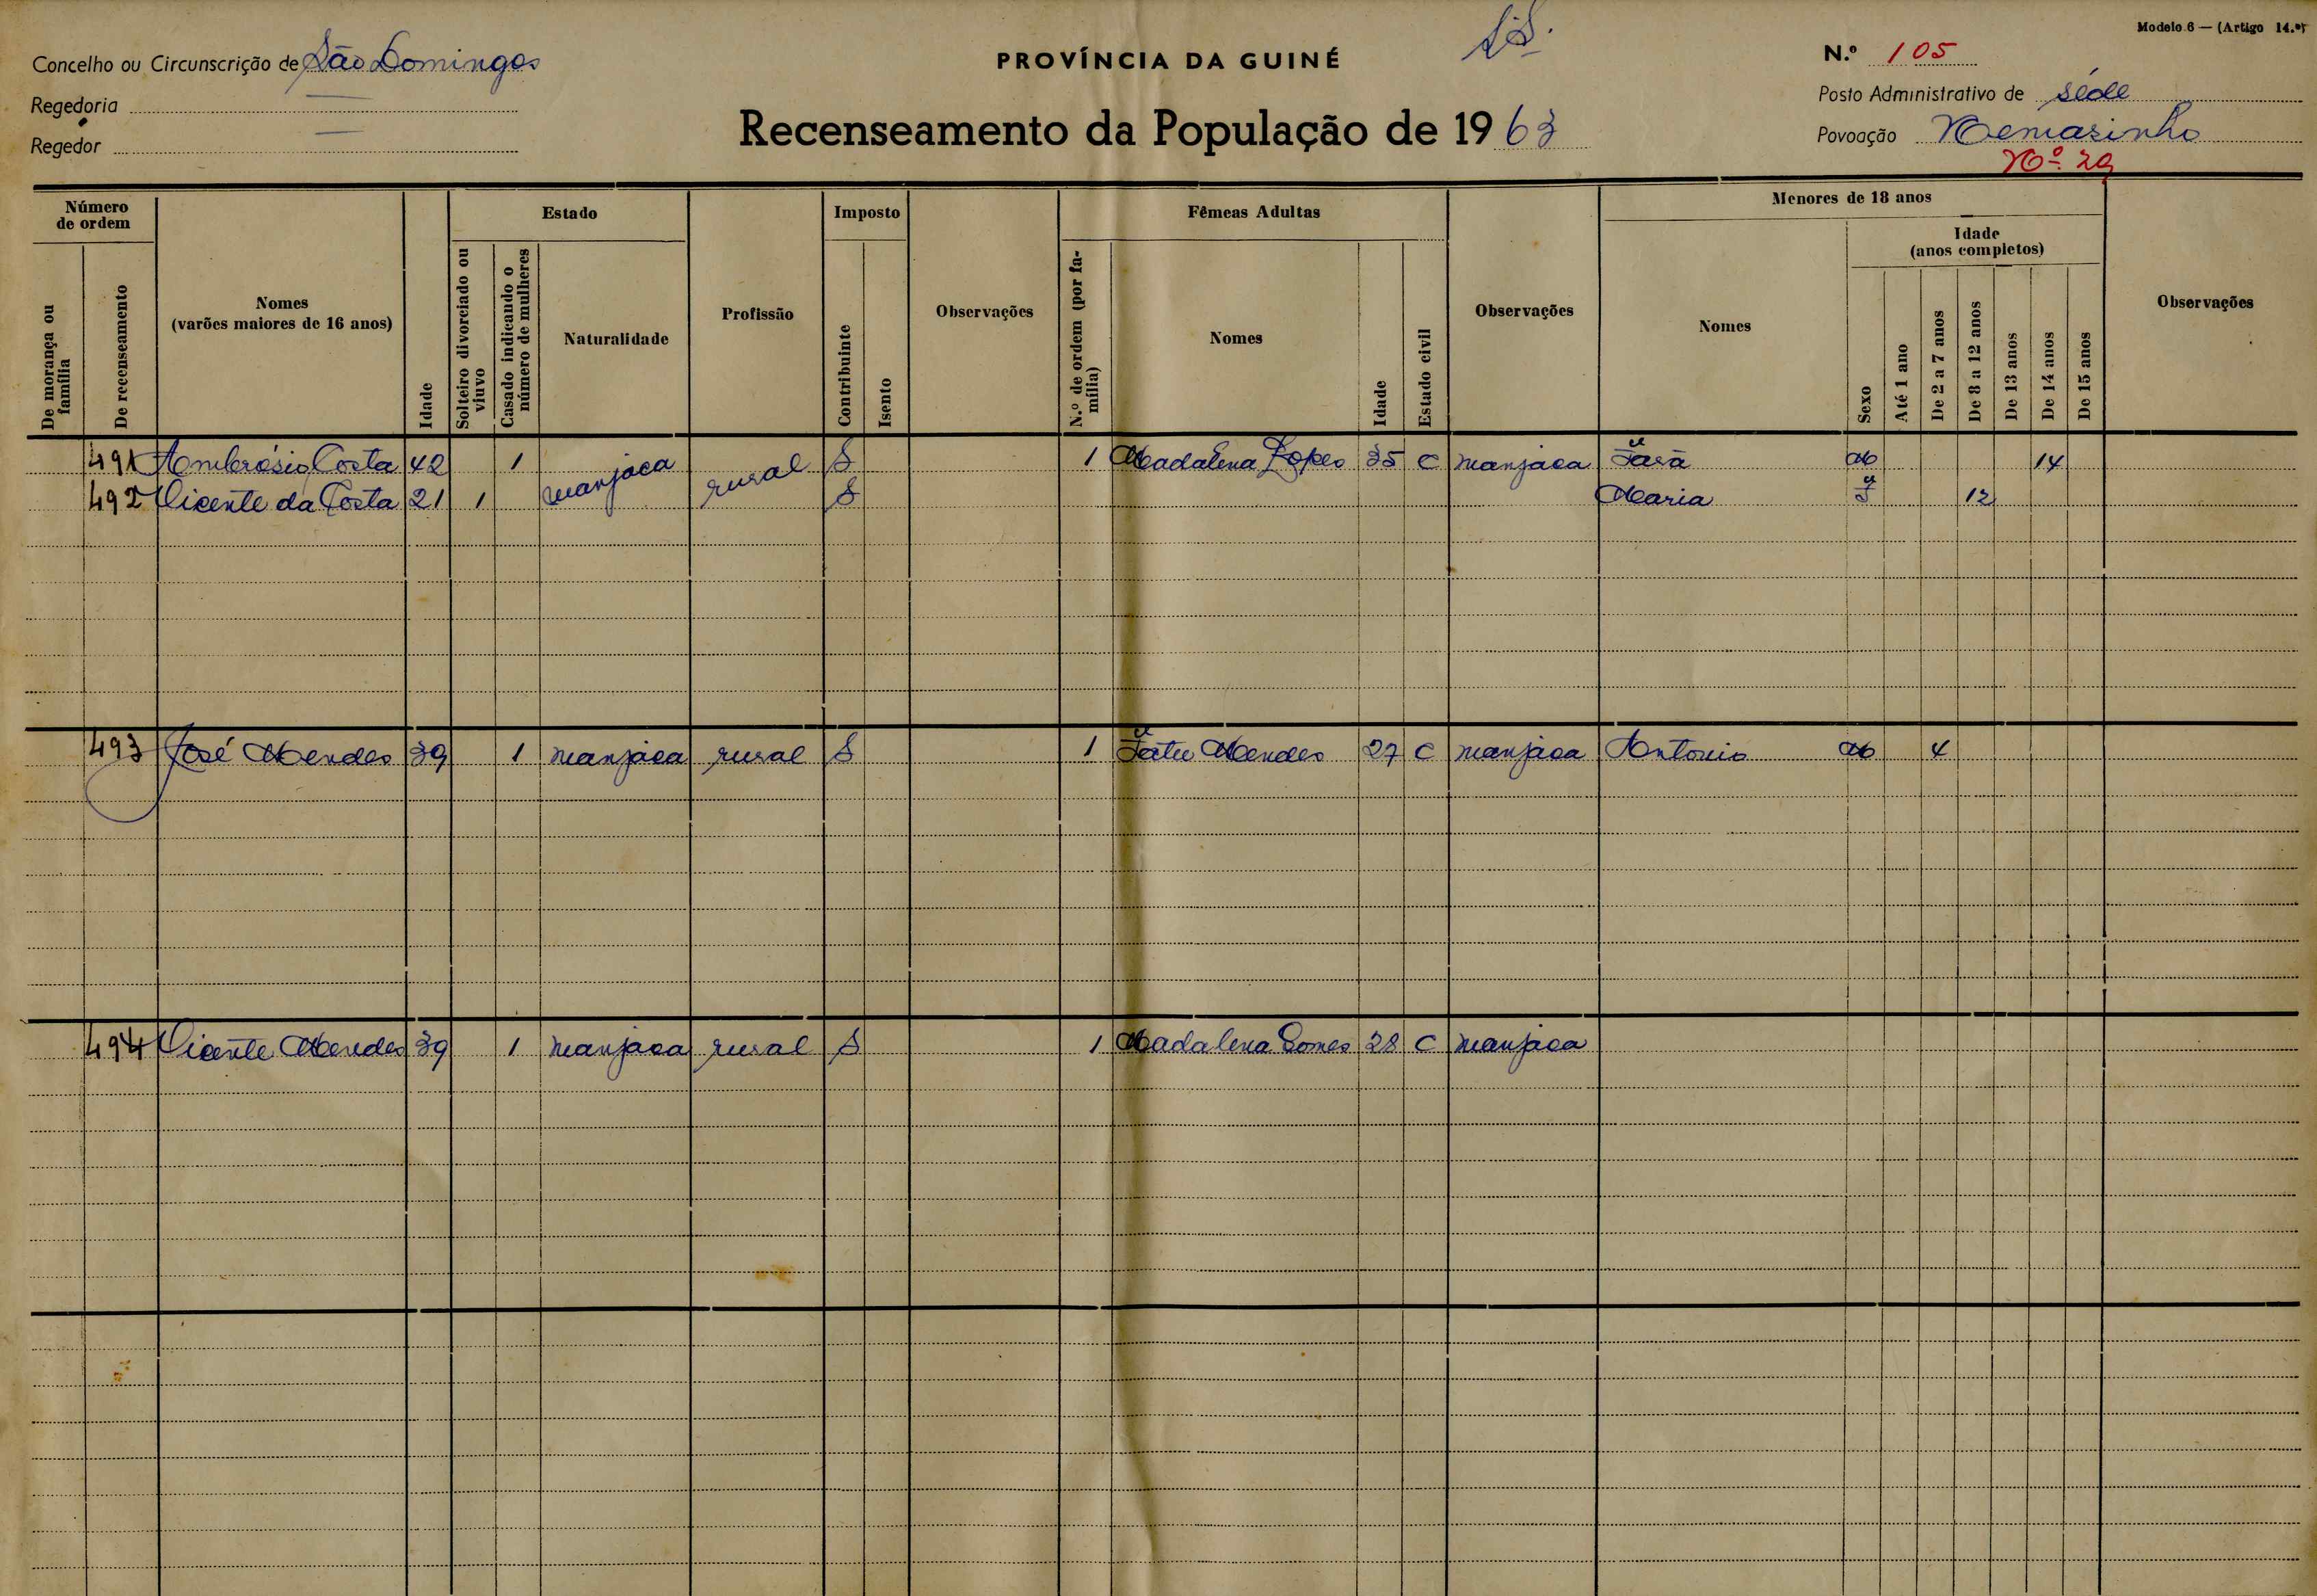 Modelo 6 — (Artigo 14.º)
Concelho ou Circunscrição de São Domingos
PROVÍNCIA DA GUINÉ
N.º 105
Regedoria —
Posto Administrativo de séde
Regedor —
Recenseamento da População de 1963
Povoação
Nº 29
Número de ordem
De morança ou família
De recenseamento
Nomes
(varões maiores de 16 anos)
Idade
Estado
Solteiro divorciado ou viuvo
Casado indicando o número de mulheres
Naturalidade
Profissão
Imposto
Contribuinte
Isento
Observações
Fêmeas Adultas
N.º de ordem (por família)
Nomes
Idade
Estado civil
Observações
Menores de 18 anos
Nomes
Sexo
Idade
(anos completos)
Até 1 ano
De 2 a 7 anos
De 8 a 12 anos
De 13 anos
De 14 anos
De 15 anos
Observações
491 Ambrósio Costa 42 1 manjaca rural S 1 Madalena Lopes 35 C manjaca M 14
492 Vicente da Costa 21 1 S Maria F 12
493 José Mendes 39 1 manjaca rural S 1 Fatu Mendes 27 C manjaca Antonio M 4
494 Vicente Mendes 39 1 manjaca rural S 1 Madalena Gomes 28 C manjaca